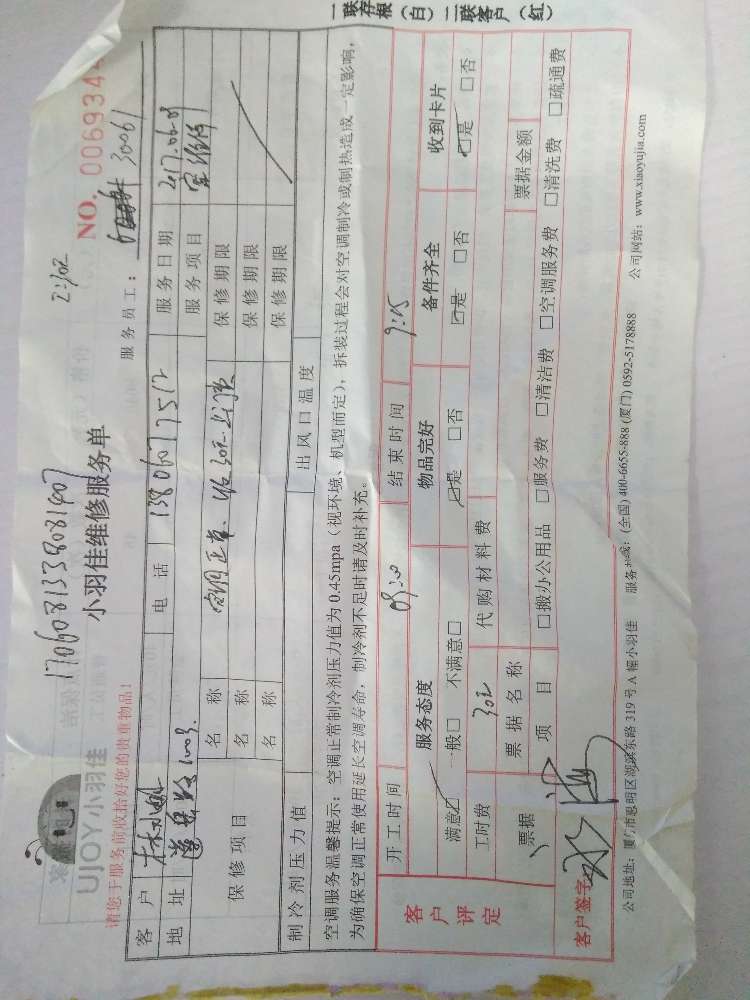 1706081338081407
2:102
UJOY小羽佳
小羽佳维修服务单
NO. 0069344
请您于服务前收拾好您的贵重物品！
服务员工： 30061
客户
电话 13806077512
服务日期 2017.06.09
地址 1003.
服务项目 空维修
保修项目
名称 空调正常.收30元上门费
保修期限
名称
保修期限
名称
保修期限
制冷剂压力值
出风口温度
空调服务温馨提示：空调正常制冷剂压力值为0.45mpa（视环境、机型而定），拆装过程会对空调制冷或制热造成一定影响，
为确保空调正常使用延长空调寿命，制冷剂不足时请及时补充。
客户评定
开工时间 09:00 结束时间 9:15
服务态度 物品完好 备件齐全 收到卡片
满意☑ 一般□ 不满意□ ☑是 □否 ☑是 □否 ☑是 □否
工时费 30元 代购材料费
票据 票据名称 票据金额
项目 □搬办公用品 □服务费 □清洁费 □空调服务费 □清洗费 □疏通费
客户签字
公司地址：厦门市思明区湖滨东路319号A幢小羽佳 服务热线：(全国) 400-6655-888 (厦门) 0592-5178888 公司网站：www.xiaoyujia.com
一联存根（白）二联客户（红）